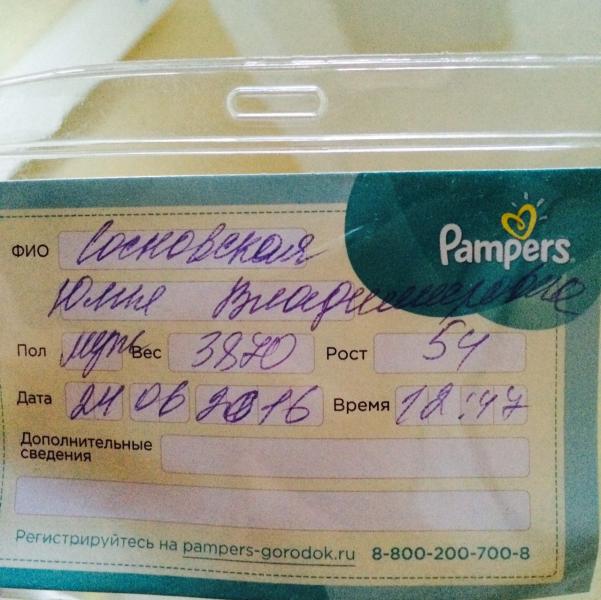 Pampers
ФИО Сосновская
Юлия Владимировна
Пол муж Вес 3870 Рост 54
Дата 24 06 2016 Время 12:47
Дополнительные
сведения
Регистрируйтесь на pampers-gorodok.ru 8-800-200-700-8